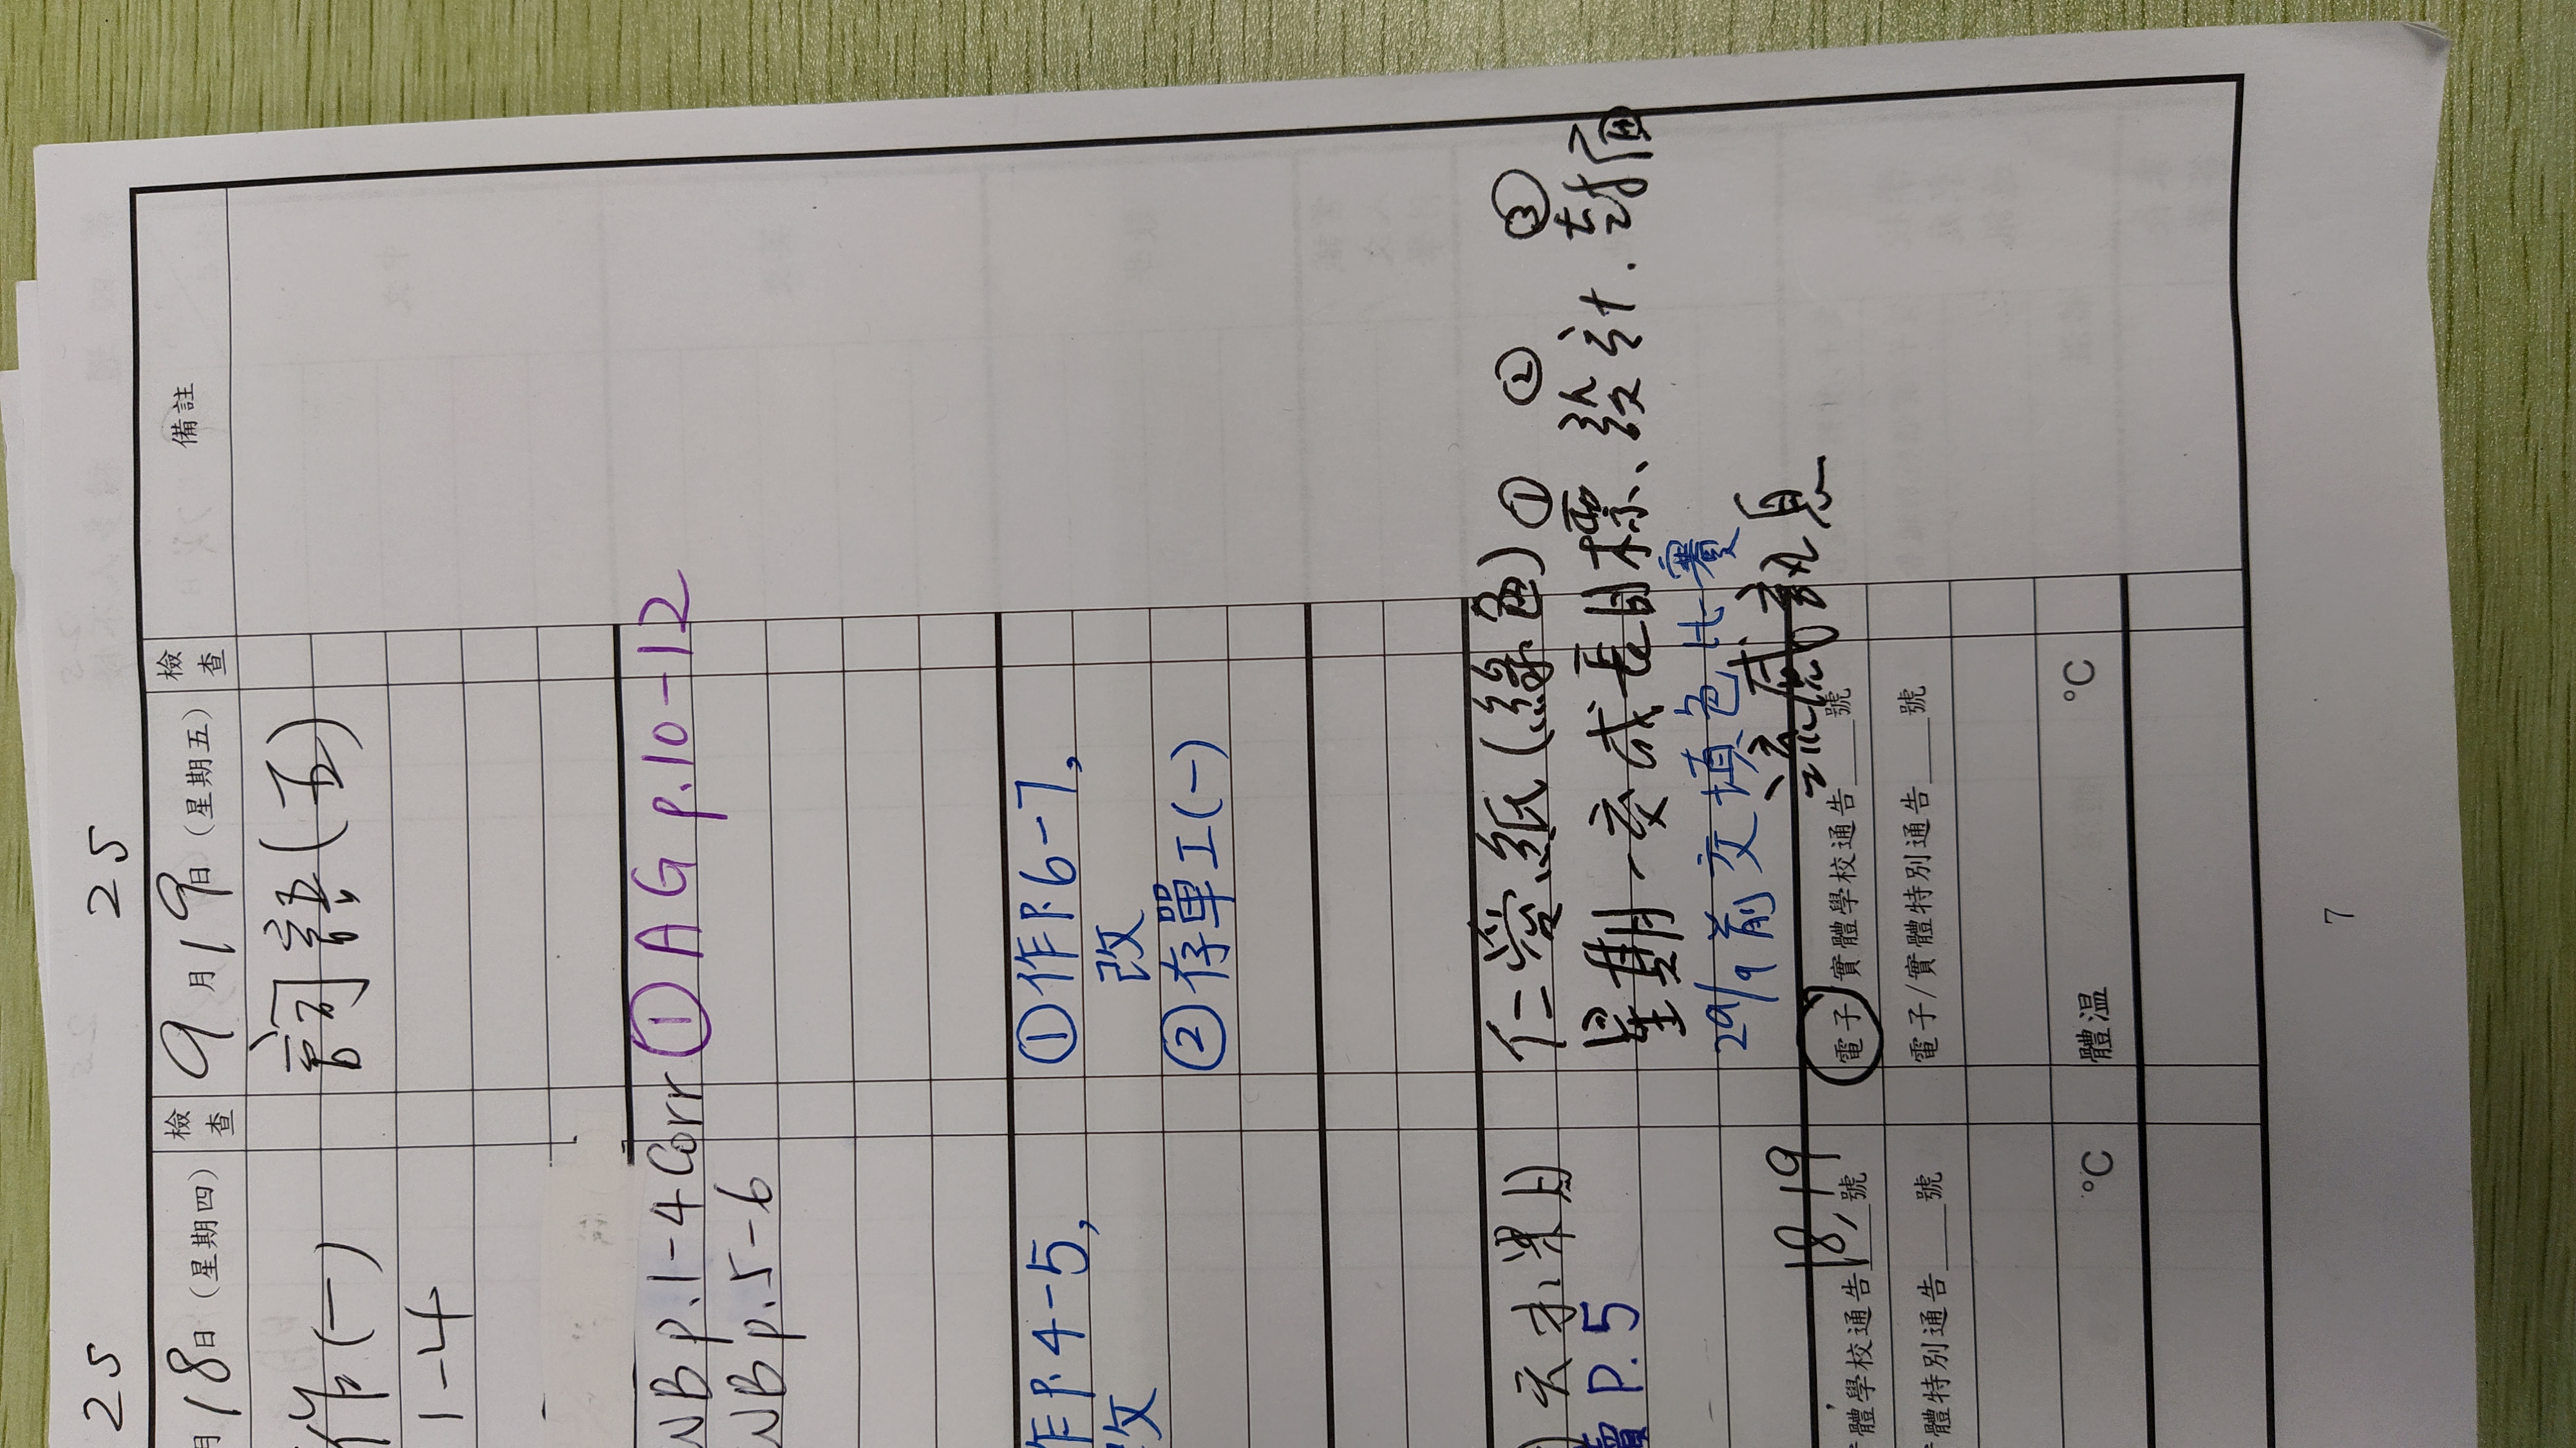 25
25
月18日(星期四)
檢查
9月19日(星期五)
檢查
備註
作(一)
詞語(五)
1-4
WB p.1-4 Corr
① AG p.10-12
WB p.5-6
作P.4-5,
①作P.6-7,
改
改
②存單工(一)
仁愛紙(綠色) ① ② ③
P.5
星期一交成長目標、設計.封面④
29/9前交填色比賽
流感訊息
18,19
體學校通告___號
電子/實體學校通告___號
體特別通告___號
電子/實體特別通告___號
°C
體溫
°C
7